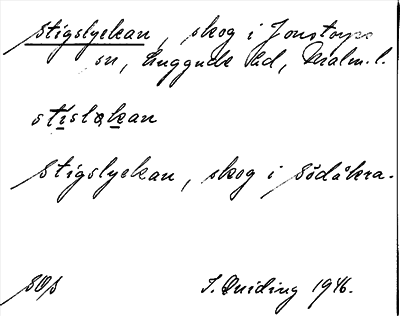 Stigslyckan, skog i Jonstorps
sn, Luggude hd, Malm. l.
stislękan
Stigslyckan, skog i Södåkra.
SOs
I. Quiding 1946.